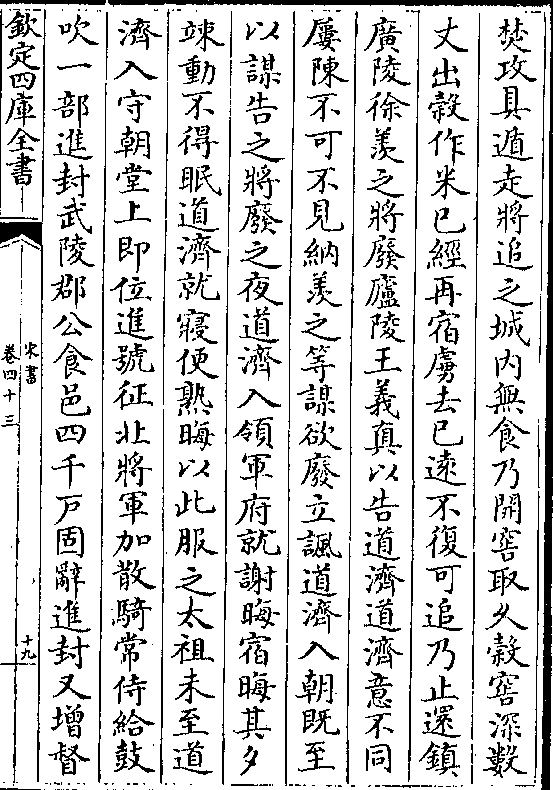 焚攻具遁走將追之城内無食乃開窖取久穀窖深數
丈出穀作米已經再宿虜去已逺不復可追乃止還鎮
廣陵徐羡之將廢廬陵王義真以告道濟道濟意不同
屢陳不可不見納羡之等謀欲廢立諷道濟入朝既至
以謀告之將廢之夜道濟入領軍府就謝晦宿晦其夕
竦動不得眠道濟就寢便熟晦以此服之太祖未至道
濟入守朝堂上即位進號征北將軍加散騎常侍給鼓
吹一部進封武陵郡公食邑四千户固辭進封又增督
欽定四庫全書
宋書
卷四十三
十九